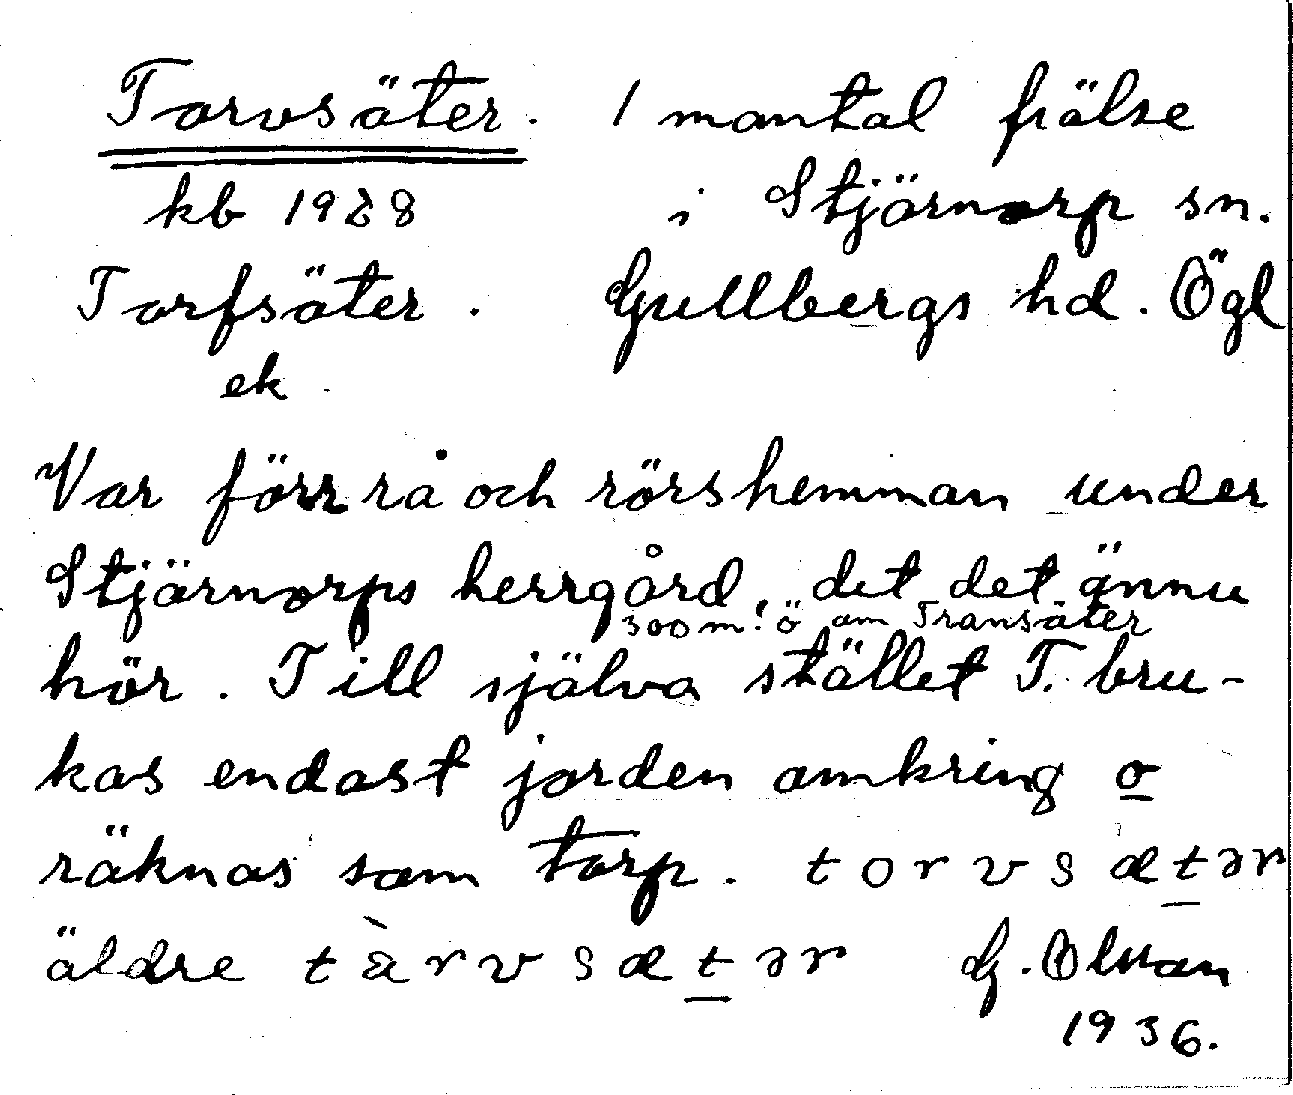 Torvsäter. 1 mantal frälse
kb 1928 i Stjärnorp sn.
Torfsäter. Gullbergs hd. Ögl
ek
Var förr rå och rörshemman under
Stjärnorps herrgård, dit det ännu
300 m. ö om Transäter
hör. Till själva stället T. bru-
kas endast jorden omkring o
räknas som torp. torvsætər
äldre tàrvsætər G. Olsson
1936.